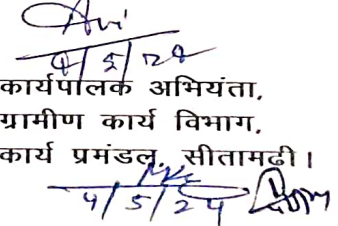 4/5/24
कार्यपालक अभियंता,
ग्रामीण कार्य विभाग,
कार्य प्रमंडल, सीतामढ़ी।
4/5/24